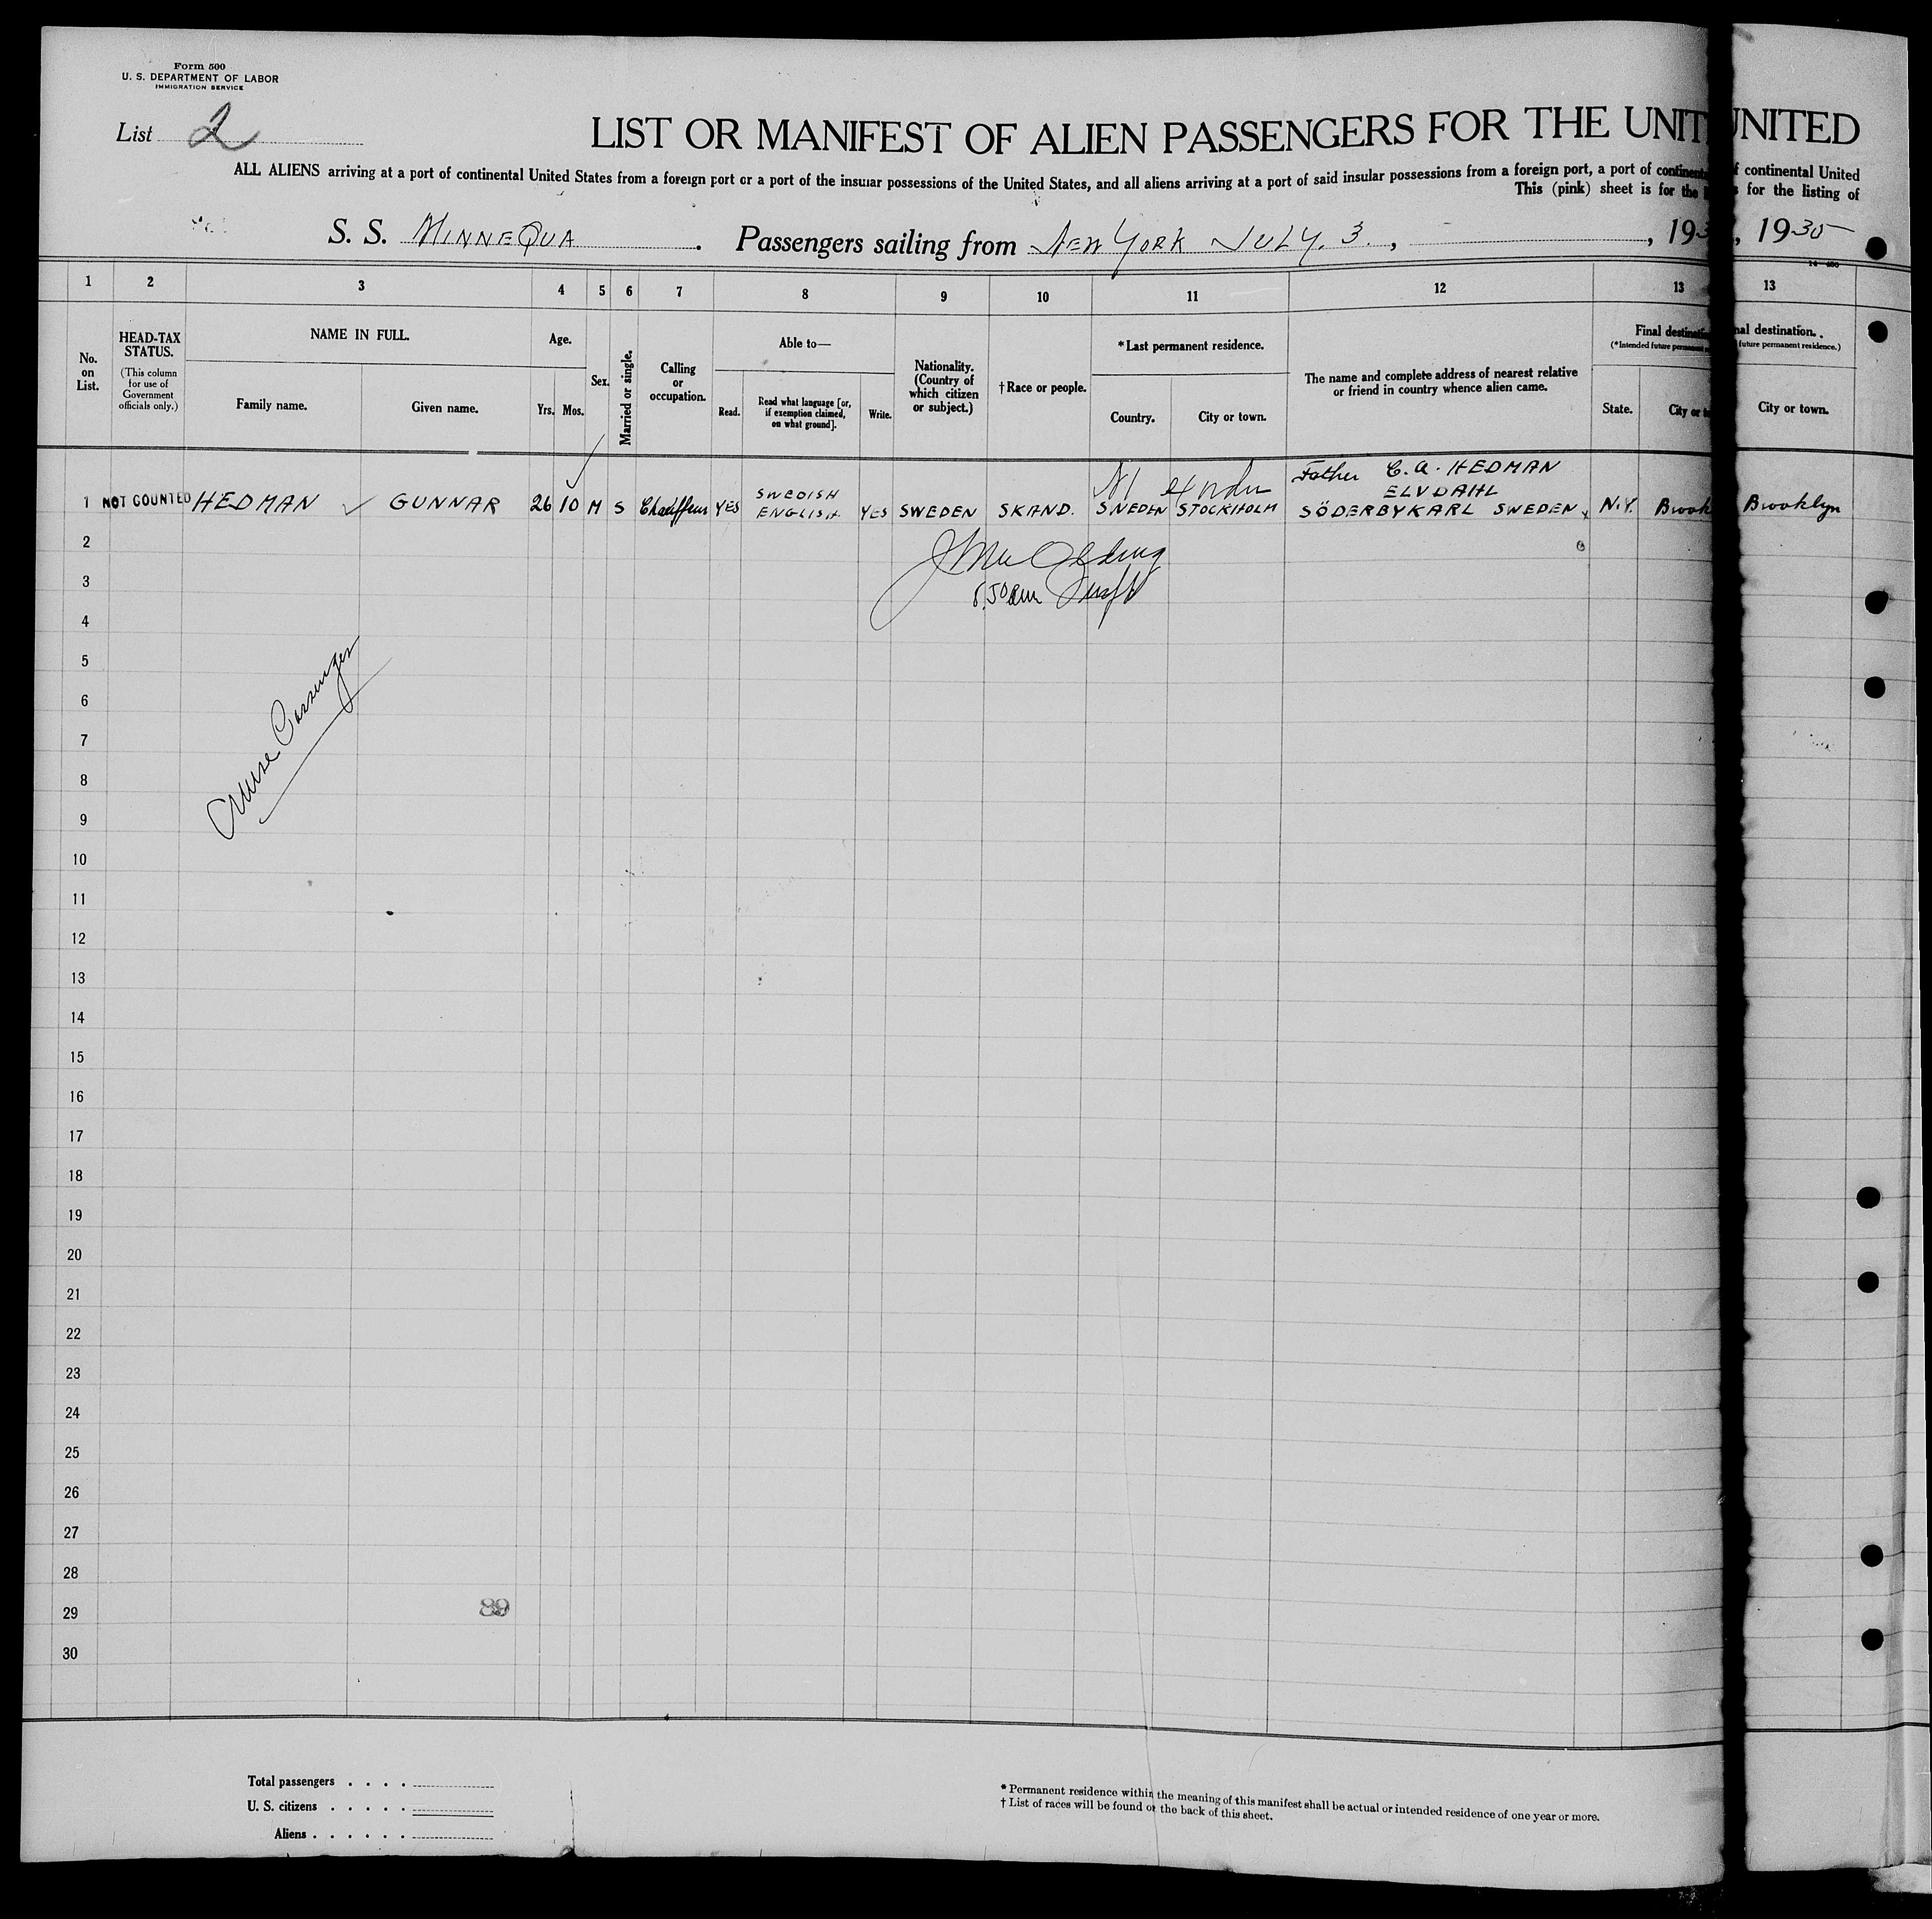 Form 500
U. S. DEPARTMENT OF LABOR
IMMIGRATION SERVICE
List 2
LIST OR MANIFEST OF ALIEN PASSENGERS FOR THE UNIT
UNITED
ALL ALIENS arriving at a port of continental United States from a foreign port or a port of the insular possessions of the United States, and all aliens arriving at a port of said insular possessions from a foreign port, a port of continental
f continental United
This (pink) sheet is for the
s for the listing of
S. S. MINNEQUA . Passengers sailing from NEW YORK JULY. 3. , , 193
, 1930
1 2 3 4 5 6 7 8 9 10 11 12 13
13
No. on List.
HEAD-TAX STATUS.
(This column for use of Government officials only.)
NAME IN FULL.
Family name.
Given name.
Age.
Yrs.
Mos.
Sex.
Married or single.
Calling or occupation.
Able to—
Read.
Read what language [or, if exemption claimed, on what ground].
Write.
Nationality. (Country of which citizen or subject.)
†Race or people.
*Last permanent residence.
Country.
City or town.
The name and complete address of nearest relative or friend in country whence alien came.
Final destination
(*Intended future permanent
State.
City or
nal destination.
future permanent residence.)
City or town.
1 NOT COUNTED HEDMAN GUNNAR 26 10 M S Chauffeur YES SWEDISH ENGLISH YES SWEDEN SKAND. SWEDEN STOCKHOLM Father C. A. HEDMAN ELVDAHL SÖDERBYKARL SWEDEN N.Y. Brook
Brooklyn
2
3
4
5
6
7
8
9
Cruise Passenger
10
11
12
13
14
15
16
17
18
19
20
21
22
23
24
25
26
27
28
29
89
30
Total passengers . . . .
U. S. citizens . . . . .
Aliens . . . . . .
* Permanent residence within the meaning of this manifest shall be actual or intended residence of one year or more.
† List of races will be found on the back of this sheet.